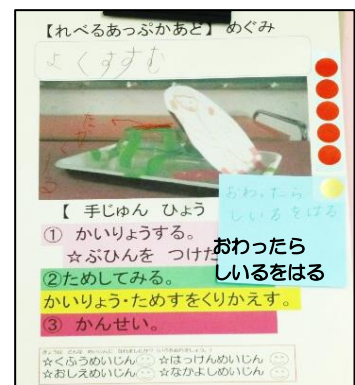 【れべるあっぷかあど】 めぐみ
よくすすむ
おわったら
しいるをはる
【 手じゅん ひょう
① かいりょうする。
☆ぶひんを つけた
おわったら
しいるをはる
②ためしてみる。
かいりょう・ためすをくりかえす。
③ かんせい。
☆くふうめいじん ☆はっけんめいじん
☆おしえめいじん ☆なかよしめいじん